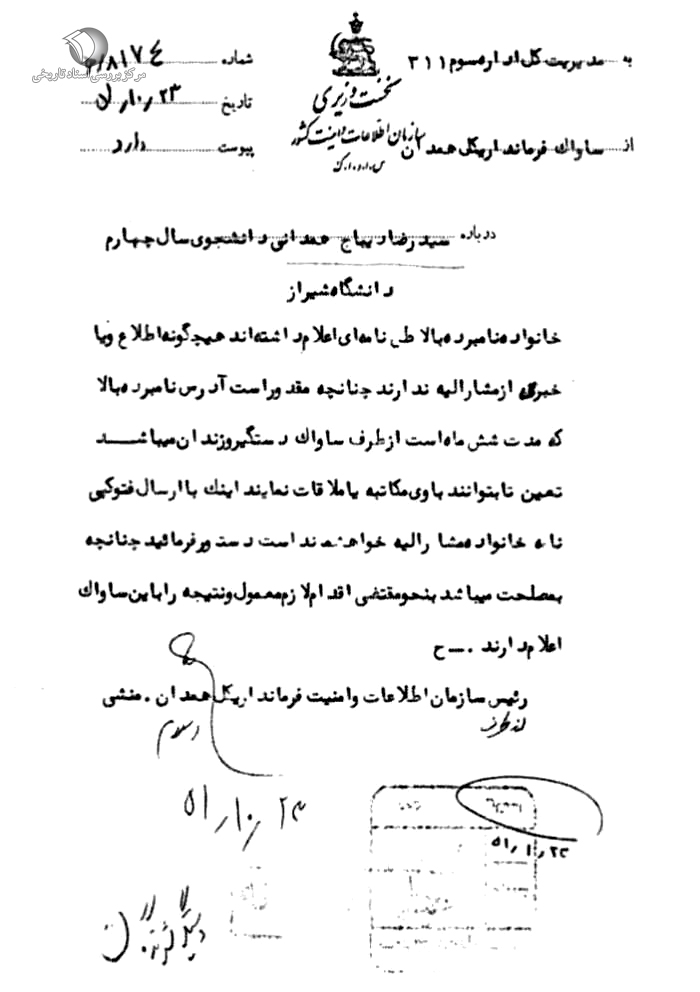 به مدیریت کل اداره سوم ۳۱۱
از ساواك فرمانداریکل همدان
نخست وزیری
سازمان اطلاعات و امنیت کشور
س.ا.و.ا.ک
شماره ۸۱۷۴/
تاریخ ۲۳ر۱۰ر۵۱
پیوست دارد
مرکز بررسی اسناد تاریخی
درباره سید رضا دیباج همدانی دانشجوی سال چهارم
دانشگاه شیراز
خانواده نامبرده بالا طی نامه‌ای اعلام داشته‌اند هیچگونه اطلاع ویا
خبری ازمشارالیه ندارند چنانچه مقدور است آدرس نامبرده بالا
که مدت شش ماه است ازطرف ساواك دستگیروزندان میباشد
تعیین تابتوانند باوی مکاتبه یاملاقات نمایند اینك باارسال فتوکپی
نامه خانواده مشارالیه خواهشمند است دستورفرمائید چنانچه
بمصلحت میباشد بنحومقتضی اقدام لازم معمول ونتیجه راباین ساواك
اعلام دارند .ــ ح
رئیس سازمان اطلاعات وامنیت فرمانداریکل همدان . منشی
از طرف
۵۱ر۱۰ر۲۳
۵۱ر۱۰ر۲۳